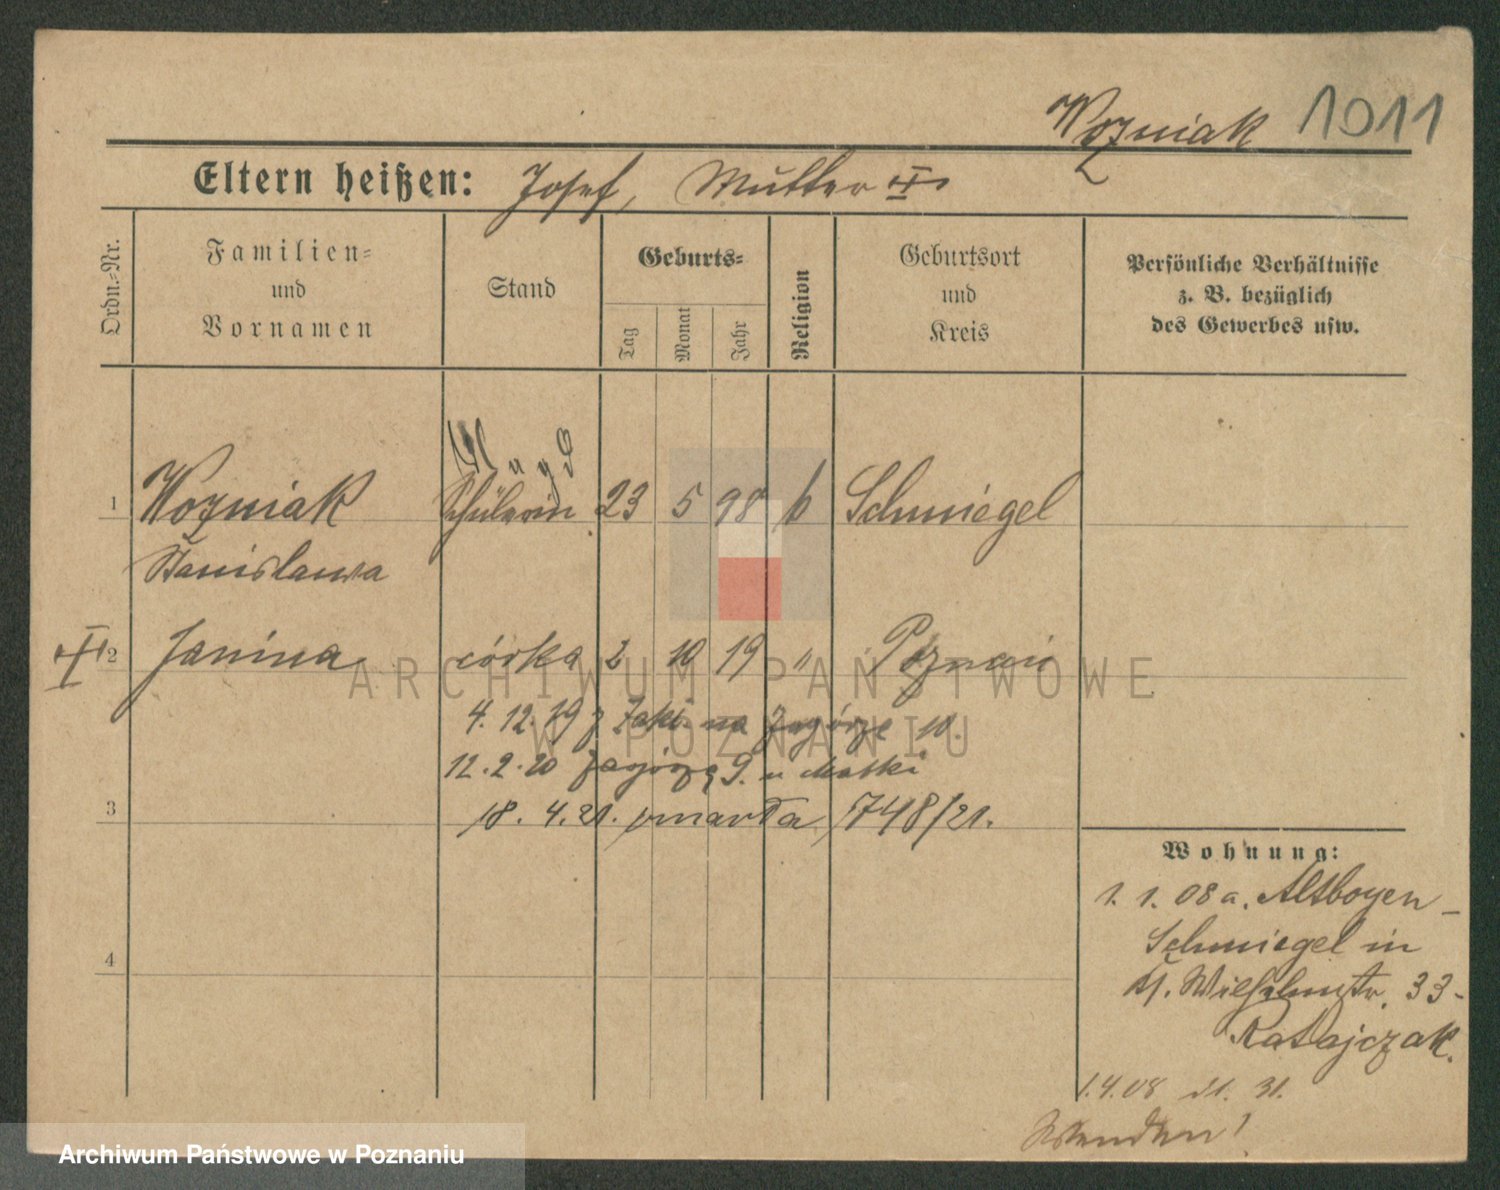 Wozniak 1011
Eltern heißen: Josef, Mutter
Ordn.-Nr.
Familien-
und
Vornamen
Stand
Geburts-
Tag
Monat
Jahr
Religion
Geburtsort
und
Kreis
Persönliche Verhältnisse
z. B. bezüglich
des Gewerbes usw.
Mägd
1 Wozniak Schülerin 23 5 98 k Schmiegel
Stanislawa
2 Janina córka 2 10 19 " Poznań
4. 12. 19 z Zakł. na Zagórze 10.
12. 2. 20 Zagórze 9. u Matki
18. 4. 21. umarła 748/21.
3
4
Wohnung:
1. 1. 08 a. Altboyen-
Schmiegel in
Wilhelmstr. 33-
Ratajczak.
1.4.08 31.
Wenden!
ARCHIWUM PAŃSTWOWE
W POZNANIU
Archiwum Państwowe w Poznaniu